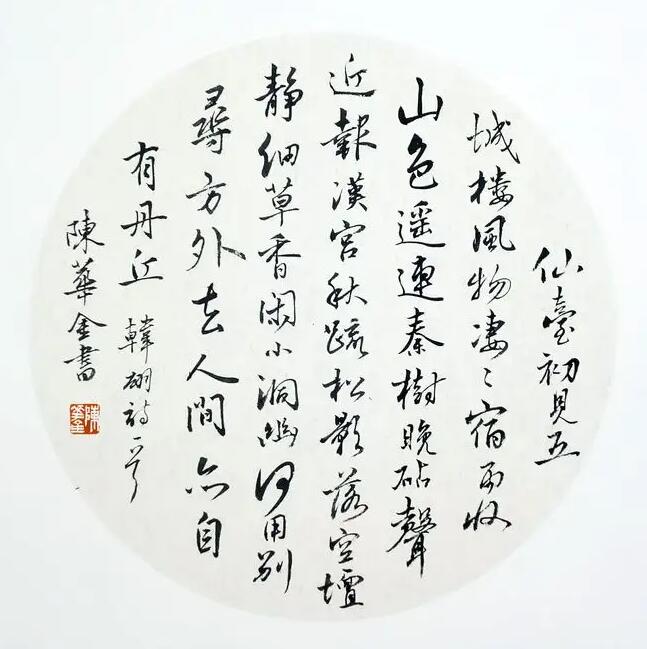 仙臺初見五
城樓風物凄〻宿雨收
山色遥連秦樹晚砧聲
近報漢宫秋疏松影落空壇
靜細草香閑小洞幽何用别
尋方外去人間亦自
有丹丘 韓翃詩一首
陳華金書
陳華金